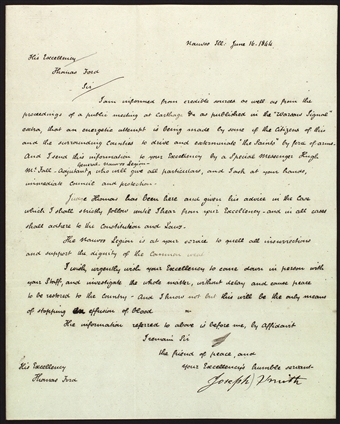 Nauvoo Ill: June 16. 1844
His Excellency
Thomas Ford
Sir
I am informed from credible sources as well as from the
proceedings of a public meeting at Carthage &c as published in the "Warsaw Signal"
extra, that an energetic attempt is being made by some of the citizens of this
and the surrounding Counties to drive and exterminate "the Saints" by force of arms.
And I send this information to your Excellency by a Special Messenger Hugh
General. Nauvoo Legion-
McFall - Adjutant, who will give all particulars, and I ask at your hands,
immediate council and protection.
Judge Thomas has been here and given his advice in the Case
which I shall strictly follow until I hear from your Excellency. and in all cases
shall adhere to the Constitution and Laws.
The Nauvoo Legion is at your service to quell all insurrections
and support the dignity of the Common weal
I wish, urgently wish your Excellency to come down in person with
your Staff, and investigate the whole matter, without delay and cause peace
to be restored to the Country - And I know not but this will be the only means
of stopping effusion of blood
The information referred to above is before me, by Affidavit
I remain Sir
the friend of peace, and
Your Excellency's humble servant
Joseph Smith
His Excellency
Thomas Ford